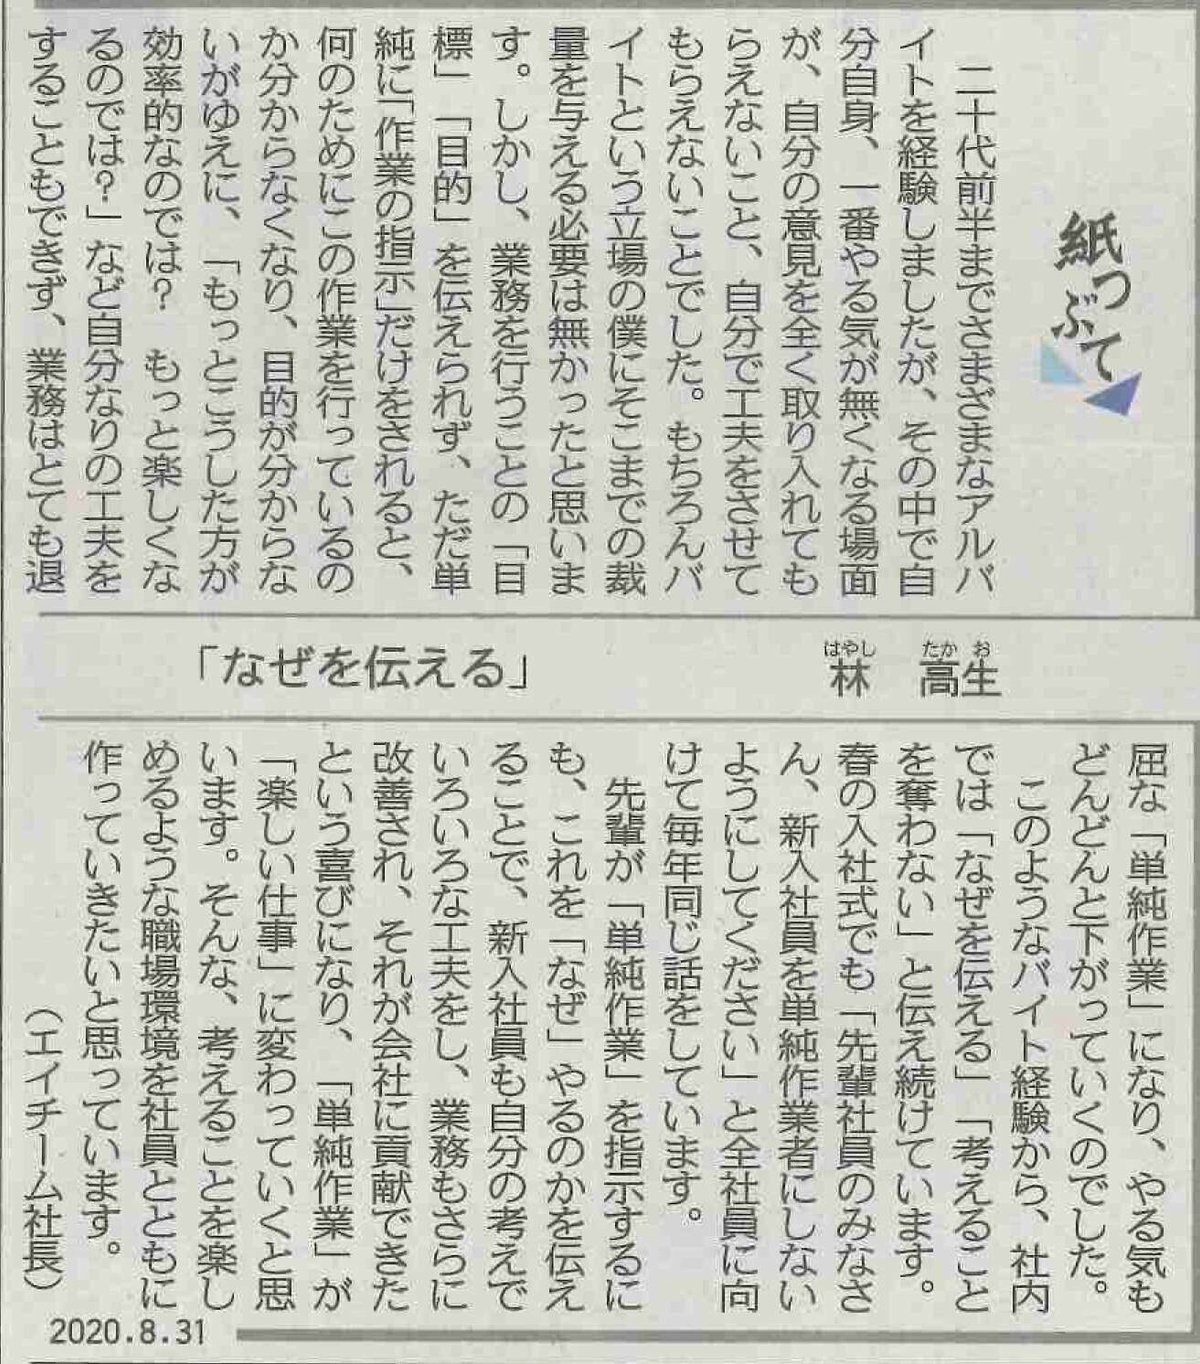 紙つぶて
二十代前半までさまざまなアルバ
イトを経験しましたが、その中で自
分自身、一番やる気が無くなる場面
が、自分の意見を全く取り入れても
らえないこと、自分で工夫をさせて
もらえないことでした。もちろんバ
イトという立場の僕にそこまでの裁
量を与える必要は無かったと思いま
す。しかし、業務を行うことの「目
標」「目的」を伝えられず、ただ単
純に「作業の指示」だけをされると、
何のためにこの作業を行っているの
か分からなくなり、目的が分からな
いがゆえに、「もっとこうした方が
効率的なのでは？　もっと楽しくな
るのでは？」など自分なりの工夫を
することもできず、業務はとても退
「なぜを伝える」
林　高生
はやし　たか　お
屈な「単純作業」になり、やる気も
どんどんと下がっていくのでした。
このようなバイト経験から、社内
では「なぜを伝える」「考えること
を奪わない」と伝え続けています。
春の入社式でも「先輩社員のみなさ
ん、新入社員を単純作業者にしない
ようにしてください」と全社員に向
けて毎年同じ話をしています。
先輩が「単純作業」を指示するに
も、これを「なぜ」やるのかを伝え
ることで、新入社員も自分の考えで
いろいろな工夫をし、業務もさらに
改善され、それが会社に貢献できた
という喜びになり、「単純作業」が
「楽しい仕事」に変わっていくと思
います。そんな、考えることを楽し
めるような職場環境を社員とともに
作っていきたいと思っています。
（エイチーム社長）
2020.8.31